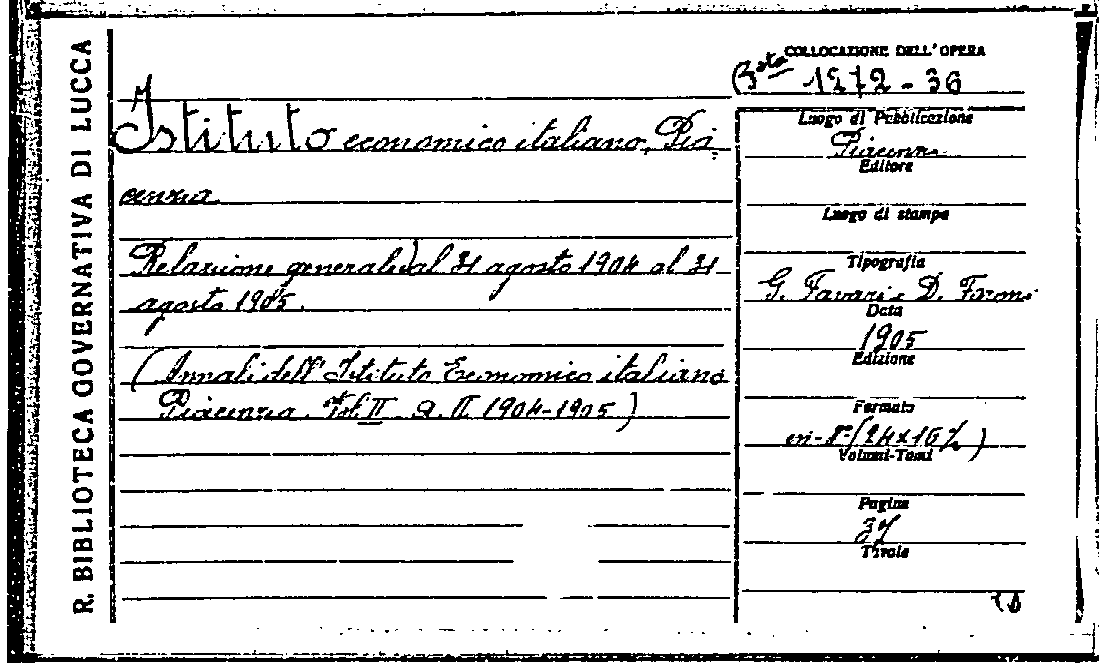 R. BIBLIOTECA GOVERNATIVA DI LUCCA
COLLOCAZIONE DELL'OPERA
Bsta 1272-36
Istituto economico italiano, Pia-
cenza
Relazione generale dal 31 agosto 1904 al 31
agosto 1905.
(Annali dell'Istituto Economico italiano
Piacenza. Vol. II a. II. 1904-1905)
Luogo di Pubblicazione
Piacenza
Editore
Luogo di stampa
Tipografia
G. Favari e D. Foroni
Data
1905
Edizione
Formato
in-8° (24x16½)
Volumi-Tomi
Pagine
37
Tavole